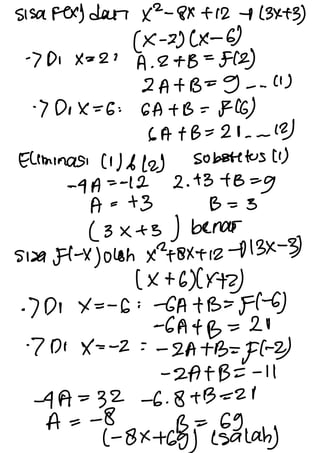 sisa F(x) dari x²-8x+12 → (3x+3)
(x-2)(x-6)
→ Di x=2: A.2+B=F(2)
2A+B=9 ... (1)
→ Di x=6: 6A+B=F(6)
6A+B=21 ... (2)
Eliminasi (1) & (2) Substitusi (1)
-4A=-12 2.+3+B=9
A=+3 B=3
(3x+3) benar
sisa F(-x) oleh x²+8x+12 → (3x-3)
(x+6)(x+2)
→ Di x=-6: -6A+B=F(-6)
-6A+B=21
→ Di x=-2: -2A+B=F(-2)
-2A+B=-11
-4A=32 -6.8+B=21
A=-8 B=69
(-8x+69) (salah)